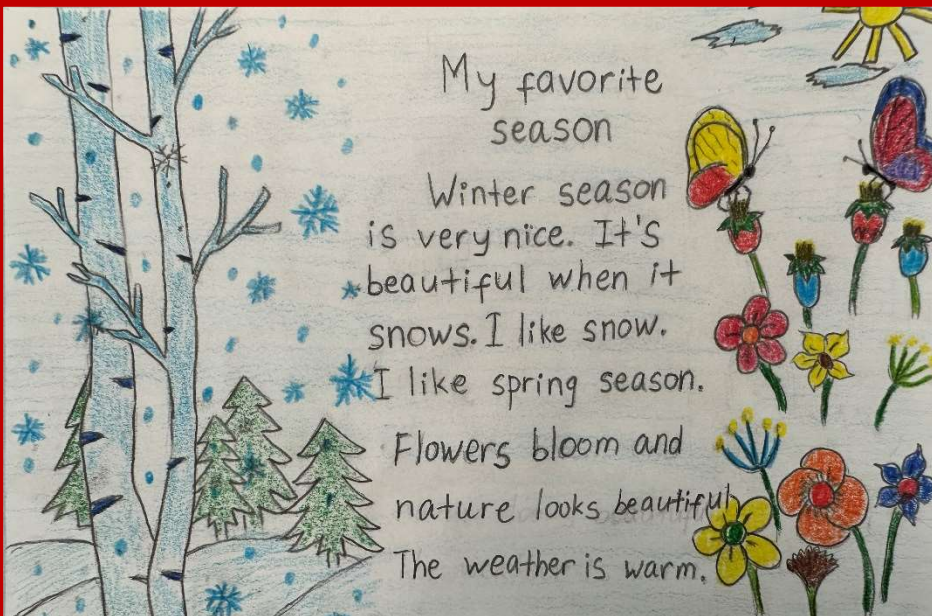 My favorite
season
Winter season
is very nice. It's
beautiful when it
snows. I like snow.
I like spring season.
Flowers bloom and
nature looks beautiful
The weather is warm.